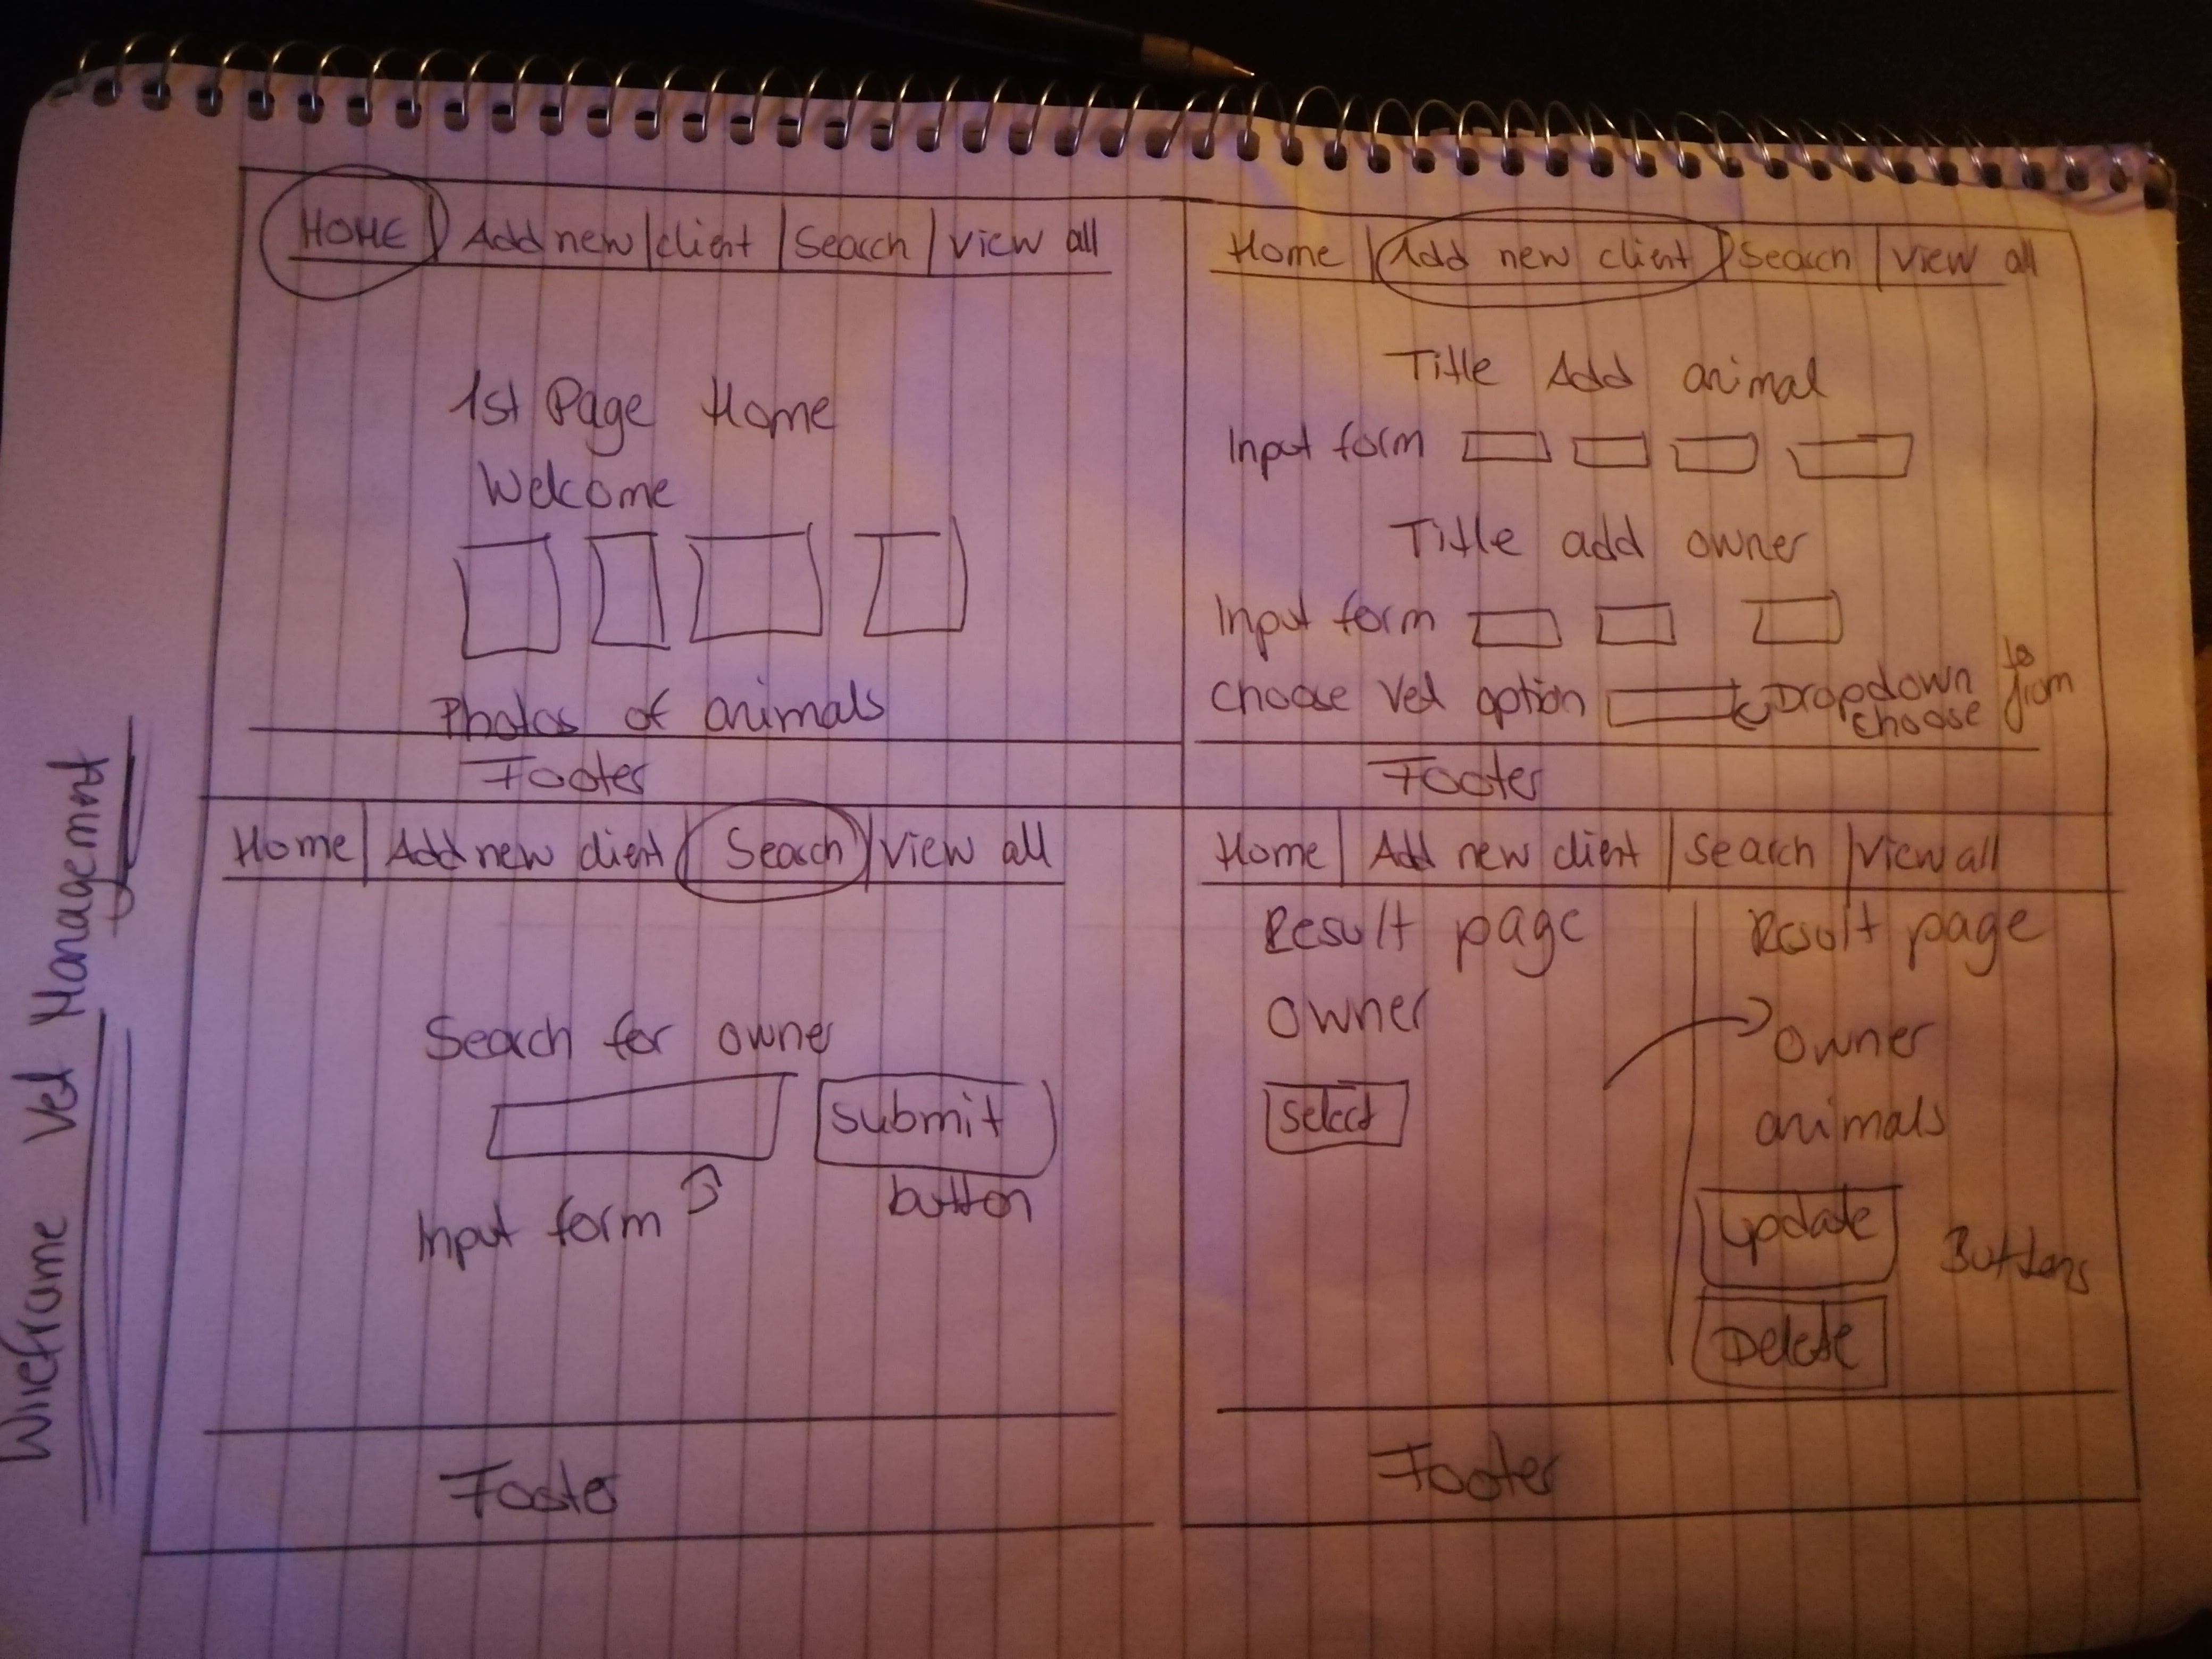 Wireframe Vet Managemnt
HOME | Add new | client | Search | View all
1st Page Home
Welcome
Photos of animals
Footer
Home | Add new client | Search | View all
Title Add animal
Input form
Title add owner
Input form
Choose Vet option Dropdown to
choose from
Footer
Home | Add new client | Search | View all
Search for owner
submit
Input form button
Footer
Home | Add new client | Search | View all
Result page
Owner
Select
Result page
Owner
animals
Update
Buttons
Delete
Footer